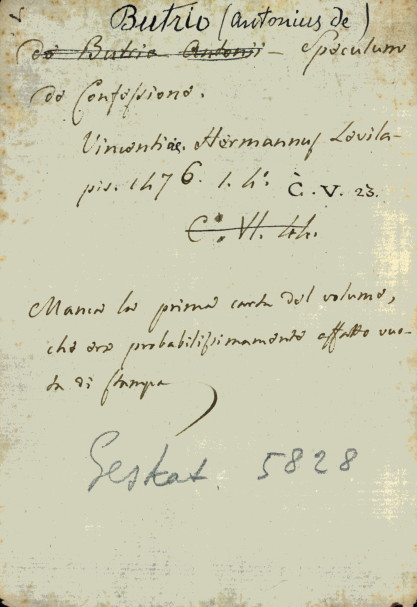 Butrio (Antonius de)
de Butrio Antonii - Speculum
de Confessione.
Vincentiae. Hermannus Levila-
pis. 1476. 1. 4°.
C. V. 23.
C. VI. 44.
Manca la prima carta del volume,
che era probabilissimamente affatto vuo-
ta di stampa
Geskat. 5828